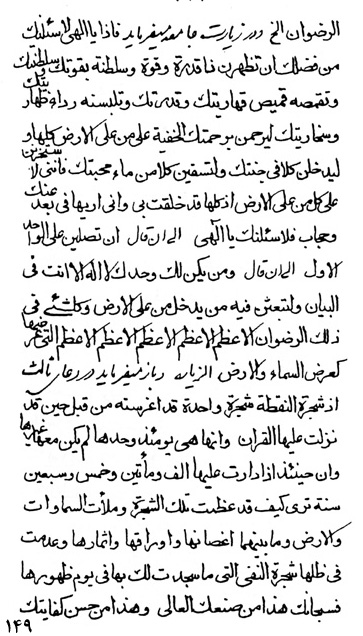 الرضوان الخ ودر زیارت جامعه میفرماید فاذا یا الهی لاسئلنك
من فضلك ان تظهرن ذا قدرة وقوة وسلطنة بقوتك وسلطنتك
وتقمصه قمیص قهاریتك وقدرتك وتلبسنه رداء ظهاریتك
وسخاریتك لیرحمن برحمتك الخفیة علی من علی الارض كلها و
لیدخلن كلا فی جنتك ولتسقین كلا من ماء محبتك فانی لا
علی كل من علی الارض اذ كلها قد خلقت بی وانی اریها فی بعد عنك
وحجاب فلاسئلنك یا الهی الی ان قال ان تصلین علی الواحد
الاول الی ان قال ومن یكن لك وحدك لا اله الا انت فی
البیان ولتبعثن فیه من یدخل من علی الارض وكلشئ فی
ذلك الرضوان الاعظم الاعظم الاعظم الاعظم الاعظم التی عرضها
كعرض السماء والارض الزیاره و باز میفرماید در دعای ثالث
از شجرة النقطة شجرة واحدة قد اغرسته من قبل حین قد
نزلت علیها القران وانها هی یومئذ وحدها لم یكن معها غیرها
وان حینئذ اذا دارت علیها الف ومأتین وخمس وسبعین
سنة تری كیف قد عظمت تلك الشجرة وملأت السماوات
والارض وما بینهما اغصانها واوراقها واثمارها وعدمت
فی ظلها شجرة النفی التی ما سجدت لك بها فی یوم ظهورها
فسبحانك هذا من صنعك العالی وهذا من حسن كفایتك
۱۴۹